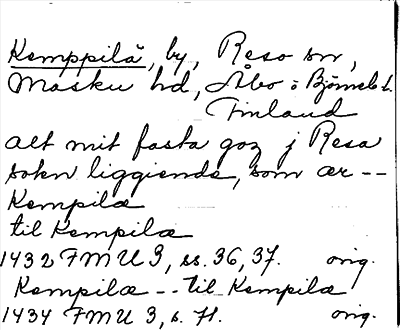 Kemppilä, by, Reso sn,
Masku hd, Åbo o Björneb. l.
Finland
alt mit fasta goz j Resa
sokn liggiende, som ær --
Kempilæ
til Kempilæ
1432 FMU 3, ss. 36, 37. orig.
Kempilæ -- til Kempilæ
1434 FMU 3, s. 71. orig.